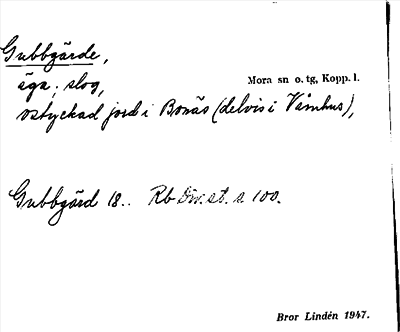 Gubbgärde,
Mora sn o. tg, Kopp. l.
äga, slog,
ostyckad jord i Bonäs (delvis i Våmhus),
Gubbgärd 18.. Rb Div. st. s 100.
Bror Lindén 1947.